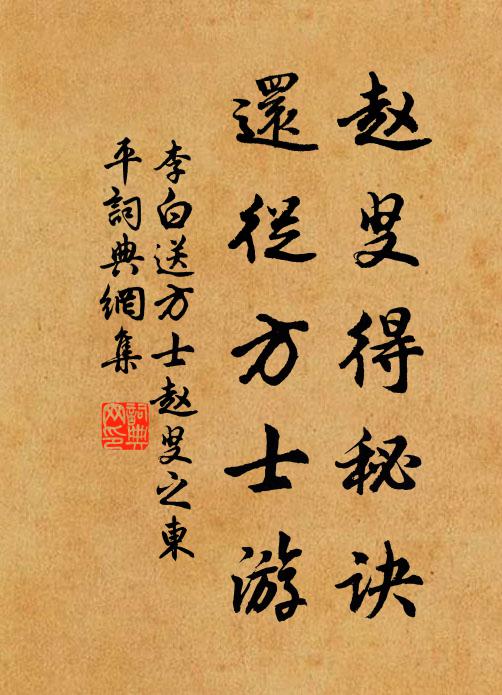 赵叟得秘诀
還從方士游
李白送方士赵叟之東
平詞典網集
詞典
网印